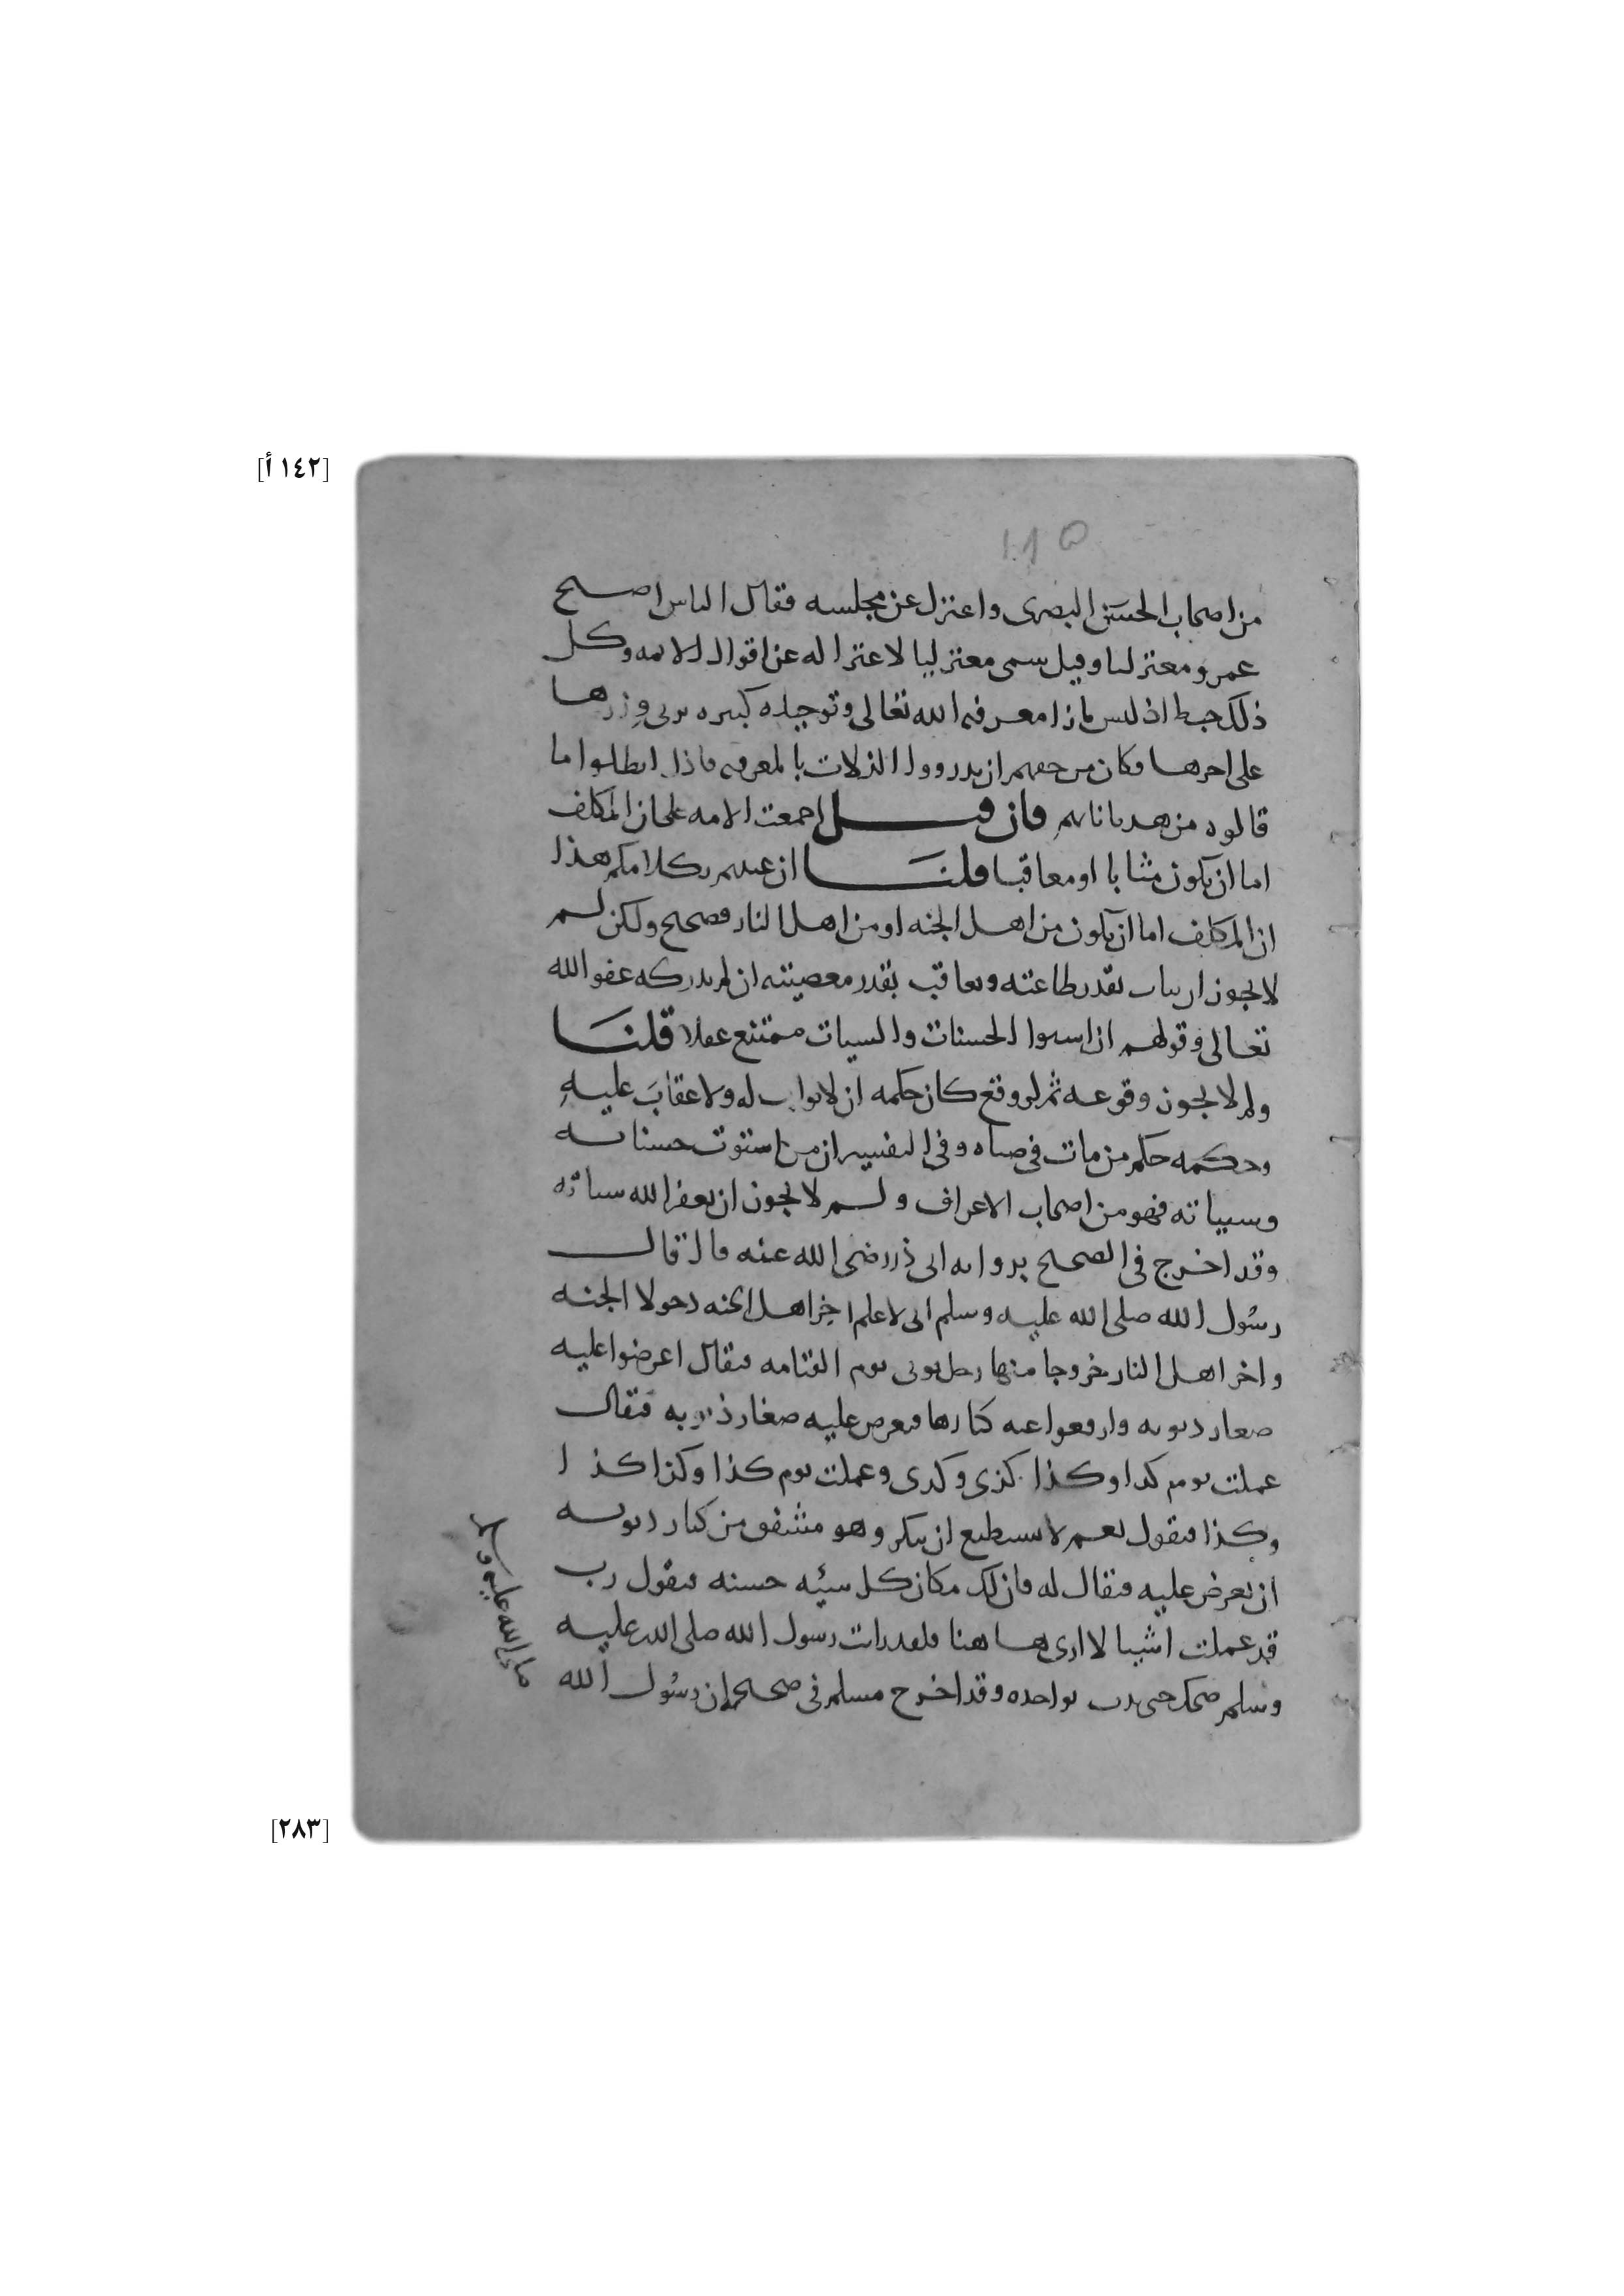 [١٤٢ أ]
من اصحاب الحسن البصرى واعتزل عن مجلسه فقال الناس اصبح
عمرو معتزليا وقيل سمى معتزليا لاعتزاله عن اقوال الامه وكل
ذلك خبط اذ ليس بازا معرفه الله تعالى وتوحيده كبيره يربى وزرها
على اجرها وكان من حقهم ان يدرووا الزلات بالمعرفه فاذا ابطلوا ما
قالوه من هذياناتهم فان قيل اجمعت الامه على ان المكلف
اما ان يكون مثابا او معاقبا قلنا ان عنيتم بكلامكم هذا
ان المكلف اما ان يكون من اهل الجنه او من اهل النار فصحيح ولكن لم
لا يجوز ان يثاب بقدر طاعته ويعاقب بقدر معصيته ان لم يدركه عفو الله
تعالى وقولهم ان استوا الحسنات والسيات ممتنع عقلا قلنا
ولم لا يجوز وقوعه ثم لو وقع كان حكمه ان لا ثواب له ولا عقاب عليه
وحكمه حكم من مات فى صباه وفى التفسير ان من استوت حسناته
وسيياته فهو من اصحاب الاعراف ولم لا يجوز ان يغفر الله سياته
وقد اخرج فى الصحيح بروايه ابى ذر رضى الله عنه قال قال
رسول الله صلى الله عليه وسلم انى لاعلم اخر اهل الجنه دخولا الجنه
واخر اهل النار خروجا منها رجل يوتى يوم القيامه فيقال اعرضوا عليه
صغار ذنوبه وارفعوا عنه كبارها فيعرض عليه صغار ذنوبه فيقال
عملت يوم كدا وكذا كذى وكدى وعملت يوم كذا وكذا كذا
وكذا فيقول نعم لا يستطيع ان ينكر وهو مشفق من كبار ذنوبه
ان يعرض عليه فيقال له فان لك مكان كل سيئه حسنه فيقول رب
قد عملت اشيا لا اراها هاهنا فلقد رايت رسول الله صلى الله عليه
وسلم ضحك حتى بدت نواجده وقد اخرج مسلم فى صحيحه ان رسول الله
الله عليه و
[٢٨٣]